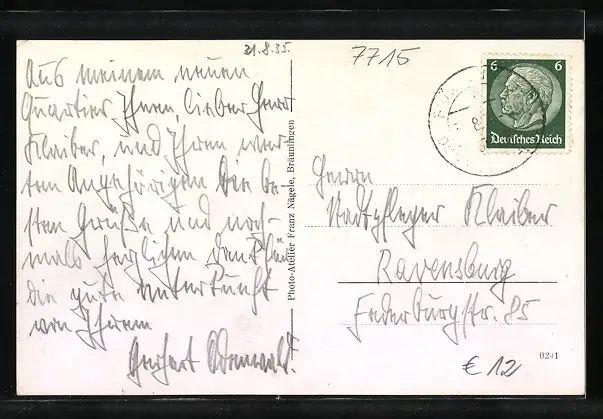 21.8.35.
7715
Aus meinem neuen
Quartier Ihnen, lieber Herr
Klaiber, und Ihren wer-
ten Angehörigen die be-
sten Grüße und noch-
mals herzlichen Dank für
die gute Unterkunft
von Ihrem
Gerhart Odenwald.
Photo-Atelier Franz Nägele, Bräunlingen
6 6
Deutsches Reich
Herrn
Stadtpfleger Klaiber
Ravensburg
Federburgstr. 85
€ 12
0241